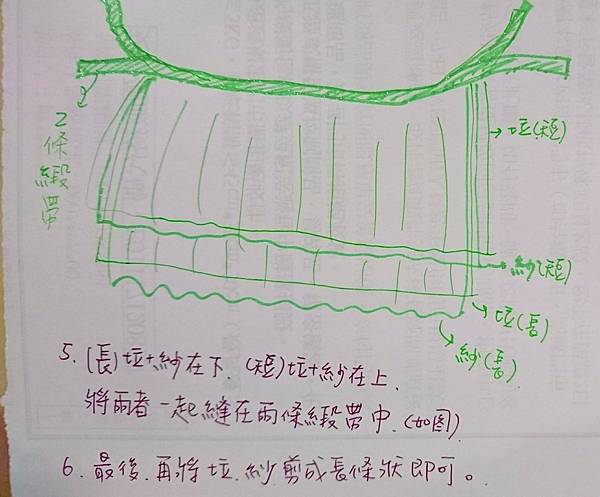 2條緞帶
→垃(短)
→紗(短)
→垃(長)
紗(長)
5.(長)垃+紗在下.(短)垃+紗在上.
將兩者一起縫在兩條緞帶中.(如图)
6.最後.再將垃.紗剪成長條狀即可。